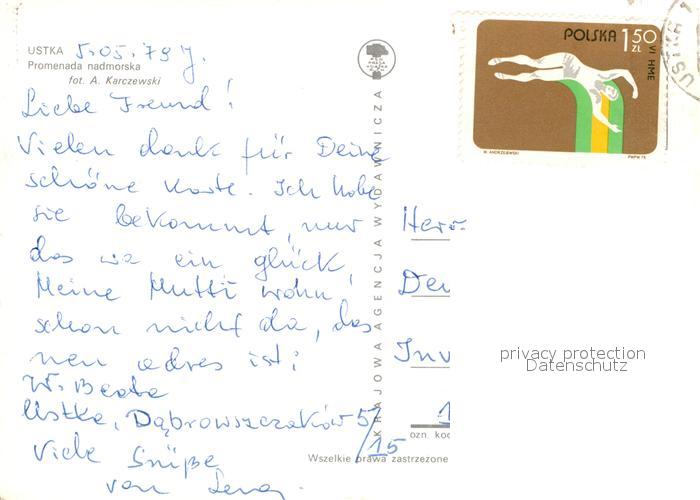 USTKA 5.05.79 r.
Promenada nadmorska
fot. A. Karczewski
Liebe Freund!
Vielen dank für Deine
schöne Karte. Ich habe
sie bekommt, nur
das wa ein glück,
Meine Mutti wohn
schon nicht da, das
neu adres ist:
W. Beata
Ustka, Dąbrowszczaków 5/
/15
Viele Grüße
von
KRAJOWA AGENCJA WYDAWNICZA
POLSKA 1,50 ZŁ
VI HME
W. ANDRZEJEWSKI
PWPW 75
USTKA 1
Herr
Inv
1
ozn. kod
Wszelkie prawa zastrzeżone
privacy protection
Datenschutz